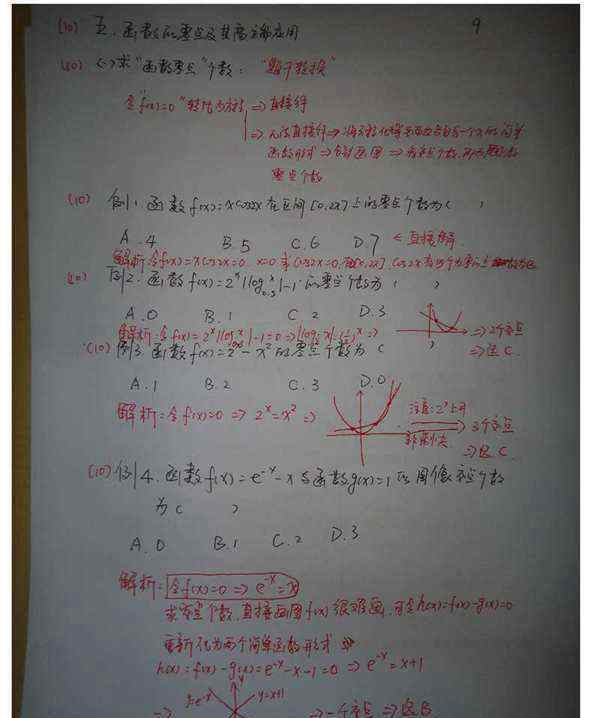 9
(10) 五、函数的零点及其高分部应用
(10) (一)求"函数零点"个数:
令"f(x)=0"转化为方程 ⇒ 直接解
⇒ 无法直接解 ⇒ 将
函数形式 ⇒ 分别画图 ⇒ 看交点个数,即为
零点个数
(10) 例1. 函数f(x)=xcos2x在区间[0,2π]上的零点个数为( )
A.4 B.5 C.6 D.7 ← 直接解.
解析:令f(x)=xcos2x=0, x=0或cos2x=0,
(10) 例2. 函数f(x)=2^x|log_0.5 x|-1的零点个数为( )
A.0 B.1 C.2 D.3
解析:令f(x)=2^x|log_0.5 x|-1=0⇒|log_0.5 x|=(1/2)^x ⇒ ⇒2个交点
⇒选C.
(10) 例3. 函数f(x)=2^x-x²的零点个数为( )
A.1 B.2 C.3 D.0
解析:令f(x)=0 ⇒ 2^x=x² ⇒ 注意:2^x上升
非常快 ⇒ 3个交点
⇒选C.
(10) 例4. 函数f(x)=e^-x-x与函数g(x)=1的图像交点个数
为( )
A.0 B.1 C.2 D.3
解析:令f(x)=0 ⇒ e^-x=x
求交点个数,直接画图f(x)很难画,可令h(x)=f(x)-g(x)=0
重新化为两个简单函数形式 ⇒
h(x)=f(x)-g(x)=e^-x-x-1=0 ⇒ e^-x=x+1
⇒ y=e^-x y y=x+1 ⇒一个交点 ⇒选B